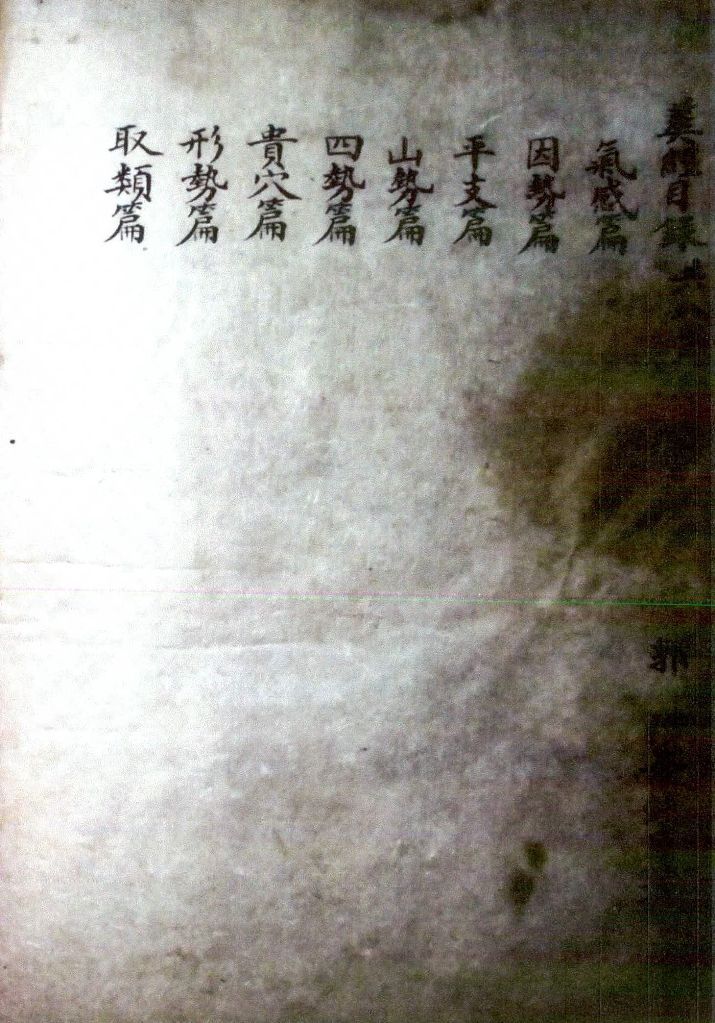 葬經目錄共八
氣感篇
因勢篇
平支篇
山勢篇
四勢篇
貴穴篇
形勢篇
取類篇